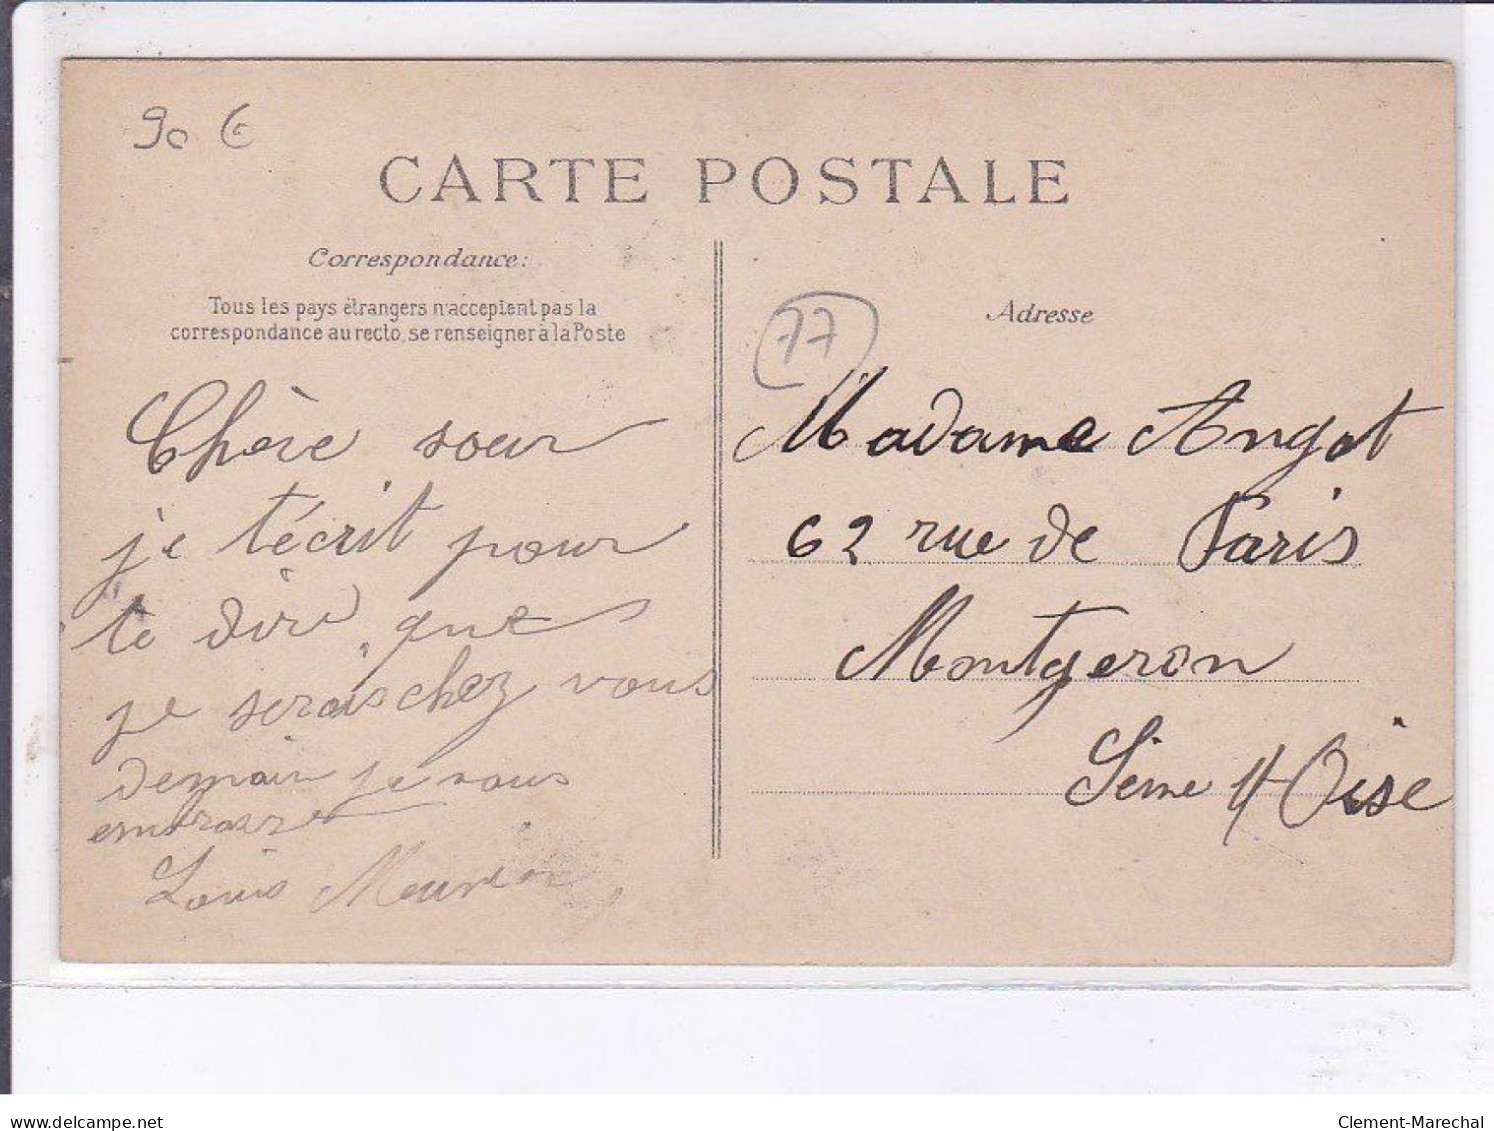 90 €
CARTE POSTALE
Correspondance:
Tous les pays étrangers n'acceptent pas la
correspondance au recto, se renseigner à la Poste
Chère soeur
je t'écrit pour
te dire que
je serais chez vous
demain je vous
embrasse
Louis
77
Adresse
Madame Angot
62 rue de Paris
Montgeron
Seine et Oise
www.delcampe.net
Clement-Marechal